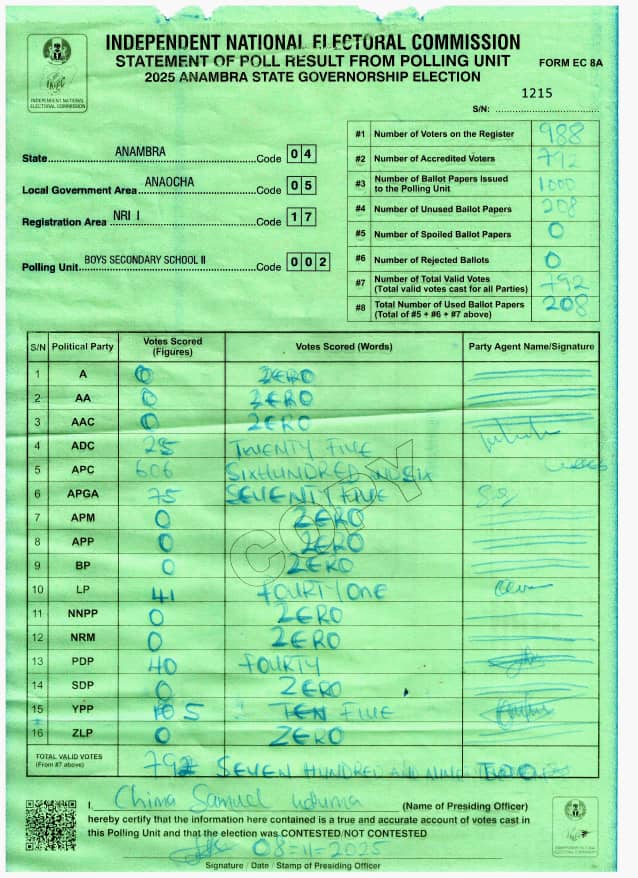 INDEPENDENT NATIONAL ELECTORAL COMMISSION
STATEMENT OF POLL RESULT FROM POLLING UNIT
FORM EC 8A
2025 ANAMBRA STATE GOVERNORSHIP ELECTION
INDEPENDENT NATIONAL
ELECTORAL COMMISSION
S/N: 1215
State ANAMBRA Code 04
Local Government Area ANAOCHA Code 05
Registration Area NRI I Code 17
Polling Unit BOYS SECONDARY SCHOOL II Code 002
#1 Number of Voters on the Register 988
#2 Number of Accredited Voters 792
#3 Number of Ballot Papers Issued to the Polling Unit 1000
#4 Number of Unused Ballot Papers 208
#5 Number of Spoiled Ballot Papers 0
#6 Number of Rejected Ballots 0
#7 Number of Total Valid Votes (Total valid votes cast for all Parties) 792
#8 Total Number of Used Ballot Papers (Total of #5 + #6 + #7 above) 208
S/N Political Party Votes Scored (Figures) Votes Scored (Words) Party Agent Name/Signature
1 A 0 ZERO
2 AA 0 ZERO
3 AAC 0 ZERO
4 ADC 25 TWENTY FIVE
5 APC 606 SIXHUNDRED SIX
6 APGA 75 SEVENTY FIVE
7 APM 0 ZERO
8 APP 0 ZERO
9 BP 0 ZERO
10 LP 41 FOURTY ONE
11 NNPP 0 ZERO
12 NRM 0 ZERO
13 PDP 40 FOURTY
14 SDP 0 ZERO
15 YPP 5 TEN FIVE
16 ZLP 0 ZERO
TOTAL VALID VOTES (From #7 above) 792 SEVEN HUNDRED AND TWO
COPY
I, Chima Samuel (Name of Presiding Officer)
hereby certify that the information here contained is a true and accurate account of votes cast in
this Polling Unit and that the election was CONTESTED/NOT CONTESTED
08-11-2025
Signature / Date / Stamp of Presiding Officer